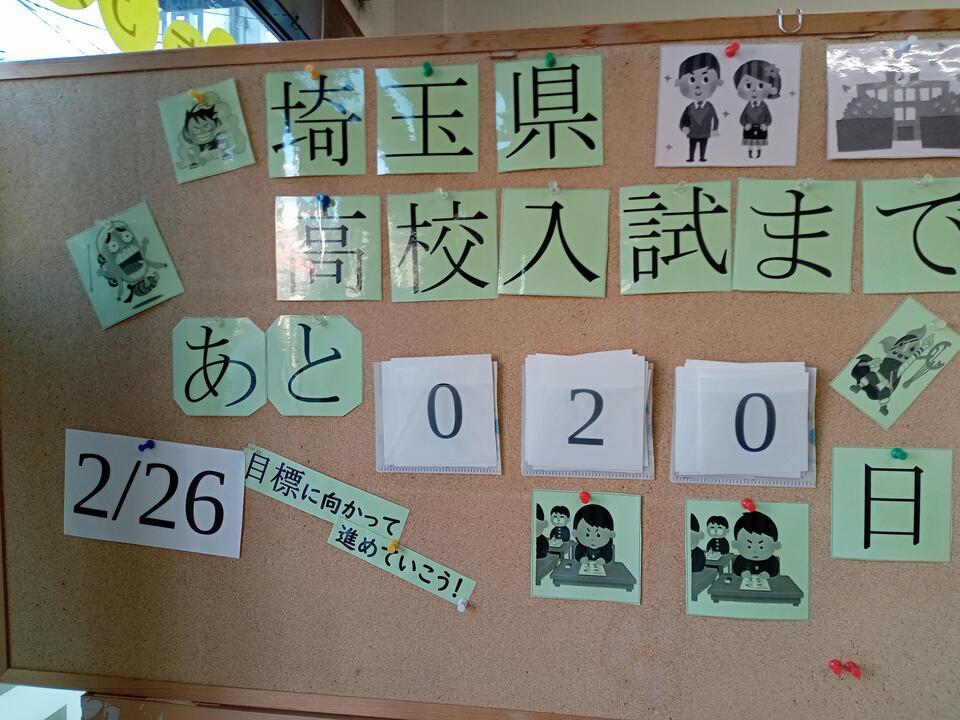 埼玉県
高校入試まで
あと020日
2/26
目標に向かって
進めていこう!